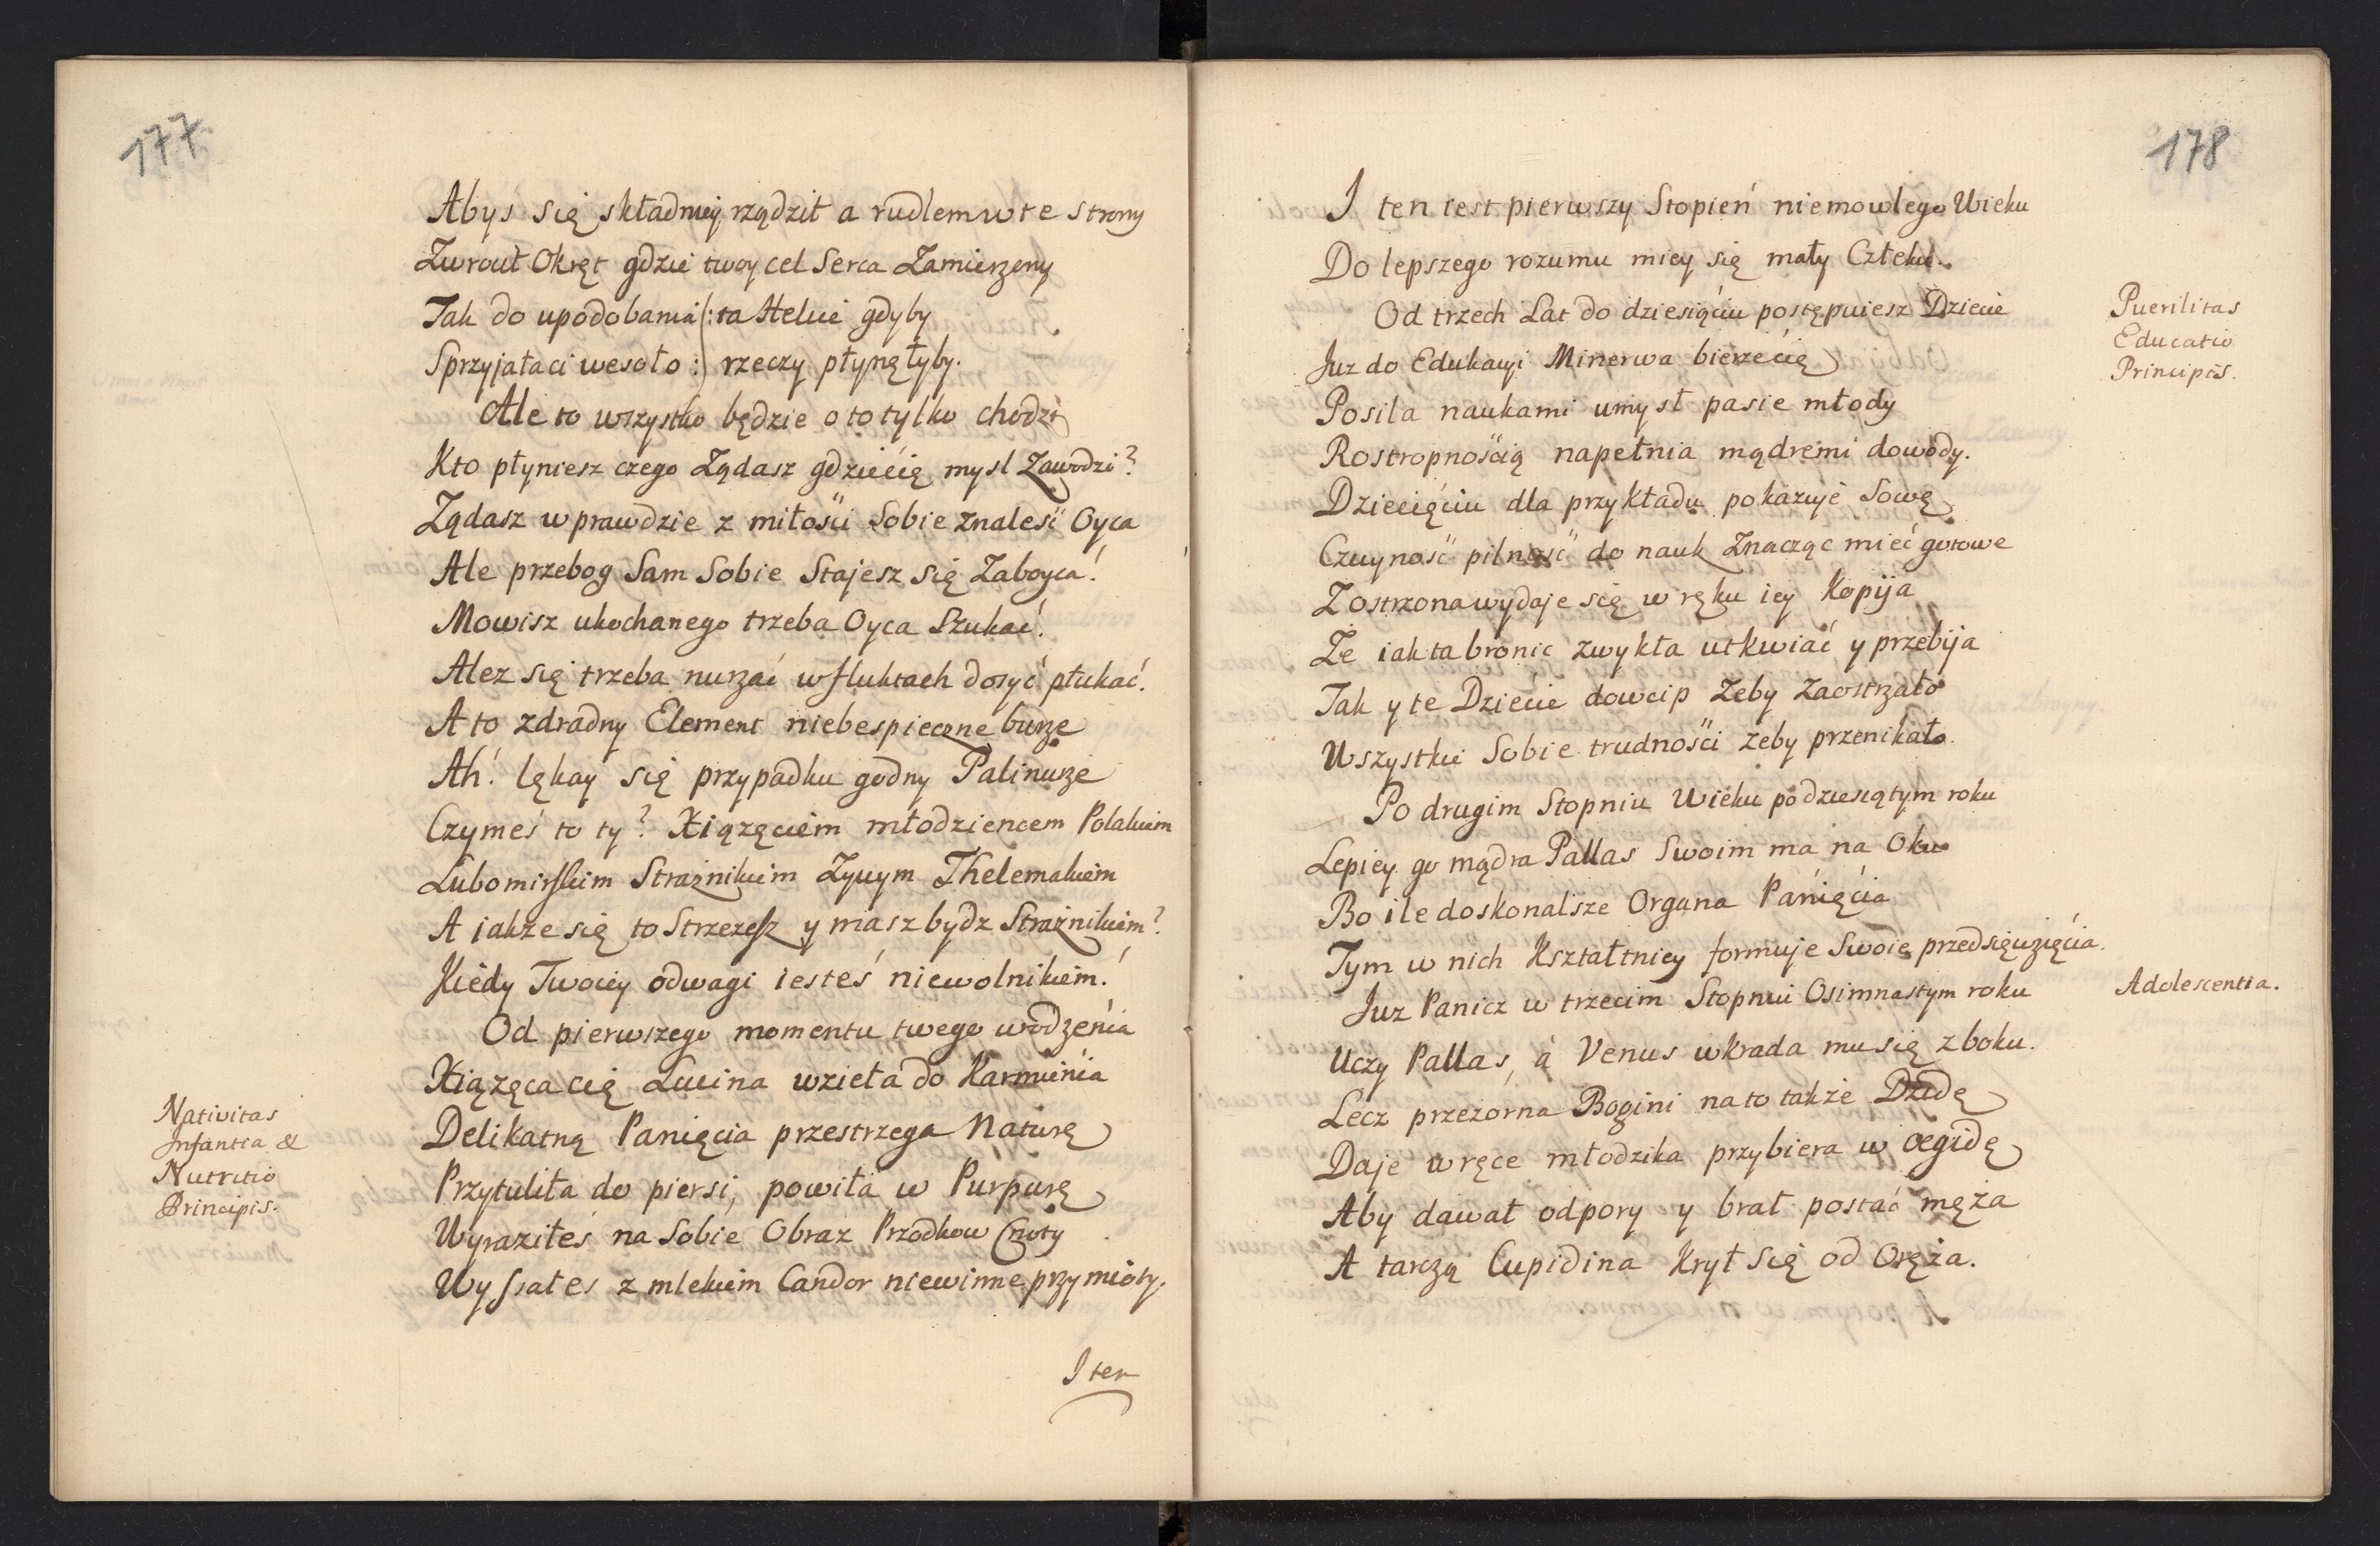 177.
Abyś się składniey rządził a rudlem w te strony
Zwrocił Okręt gdzie twoy cel Serca Zamierzony
Tak do upodobania (: ta Helice gdyby
Sprzyjała ci wesoło :) rzeczy płynęłyby.
Ale to wszystko będzie o to tylko chodzi
Kto płyniesz czego Ządasz gdzie cię mysl Zawodzi?
Ządasz w prawdzie z miłości Sobie znaleść Oyca
Ale przebog Sam Sobie Stajesz się Zaboyca!
Mowisz ukochanego trzeba Oyca Szukać!
Alez się trzeba nurzać w fluktach dosyć płukać.
A to zdradny Element niebespieczne burze
Ah! lękay się przypadku godny Palinurze
Czymeś to ty? Xiązęciem młodziencem Polakiem
Lubomirskim Strażnikiem Zywym Thelemakiem
A iakże się to Strzezesz y masz bydz Strażnikiem?
Kiedy Twoiey odwagi iesteś niewolnikiem!
Od pierwszego momentu twego wrodzenia
Xiązęca cię Lucina wzieła do Karmienia
Nativitas
Infantia &
Nutritio
Principis.
Delikatną Panięcia przestrzega Naturę
Przytuliła do piersi, powiła w Purpurę
Wyraziłeś na Sobie Obraz Przodkow Cnoty
Wyssałes z mlekiem Candor niewinne przymioty.
I ten
178
I ten iest pierwszy Stopień niemowlego Wieku
Do lepszego rozumu miey się mały Człeku.
Od trzech Lat do dziesięciu postępuiesz Dziecie
Puerilitas
Educatio
Principis.
Juz do Edukacyi Minerwa bierze cię
Posila naukami umysł pasie młody
Rostropnością napełnia mądremi dowody.
Dziecięciu dla przykładu pokazuje Sowę
Czuyność pilność do nauk Znacząc mieć gotowe
Zostrzona wydaje się w ręku iey Kopija
Ze iak ta bronic zwykła utkwiać y przebija
Tak y te Dziecie dowcip Zeby Zaostrzało
Wszystkie Sobie trudności zeby przenikało.
Po drugim Stopniu Wieku po dziesiątym roku
Lepiey go mądra Pallas Swoim ma na Oku
Bo ile doskonalsze Organa Panięcia
Tym w nich Kształtniey formuje Swoie przedsięwzięcia.
Juz Panicz w trzecim Stopniu Osimnastym roku
Adolescentia.
Uczy Pallas, à Venus wkrada mu się z boku.
Lecz przezorna Bogini na to także Dzidę
Daje w ręce młodzika przybiera w œgidę
Aby dawał odpory y brał postać męża
A tarczą Cupidina Krył Się od Oręża.